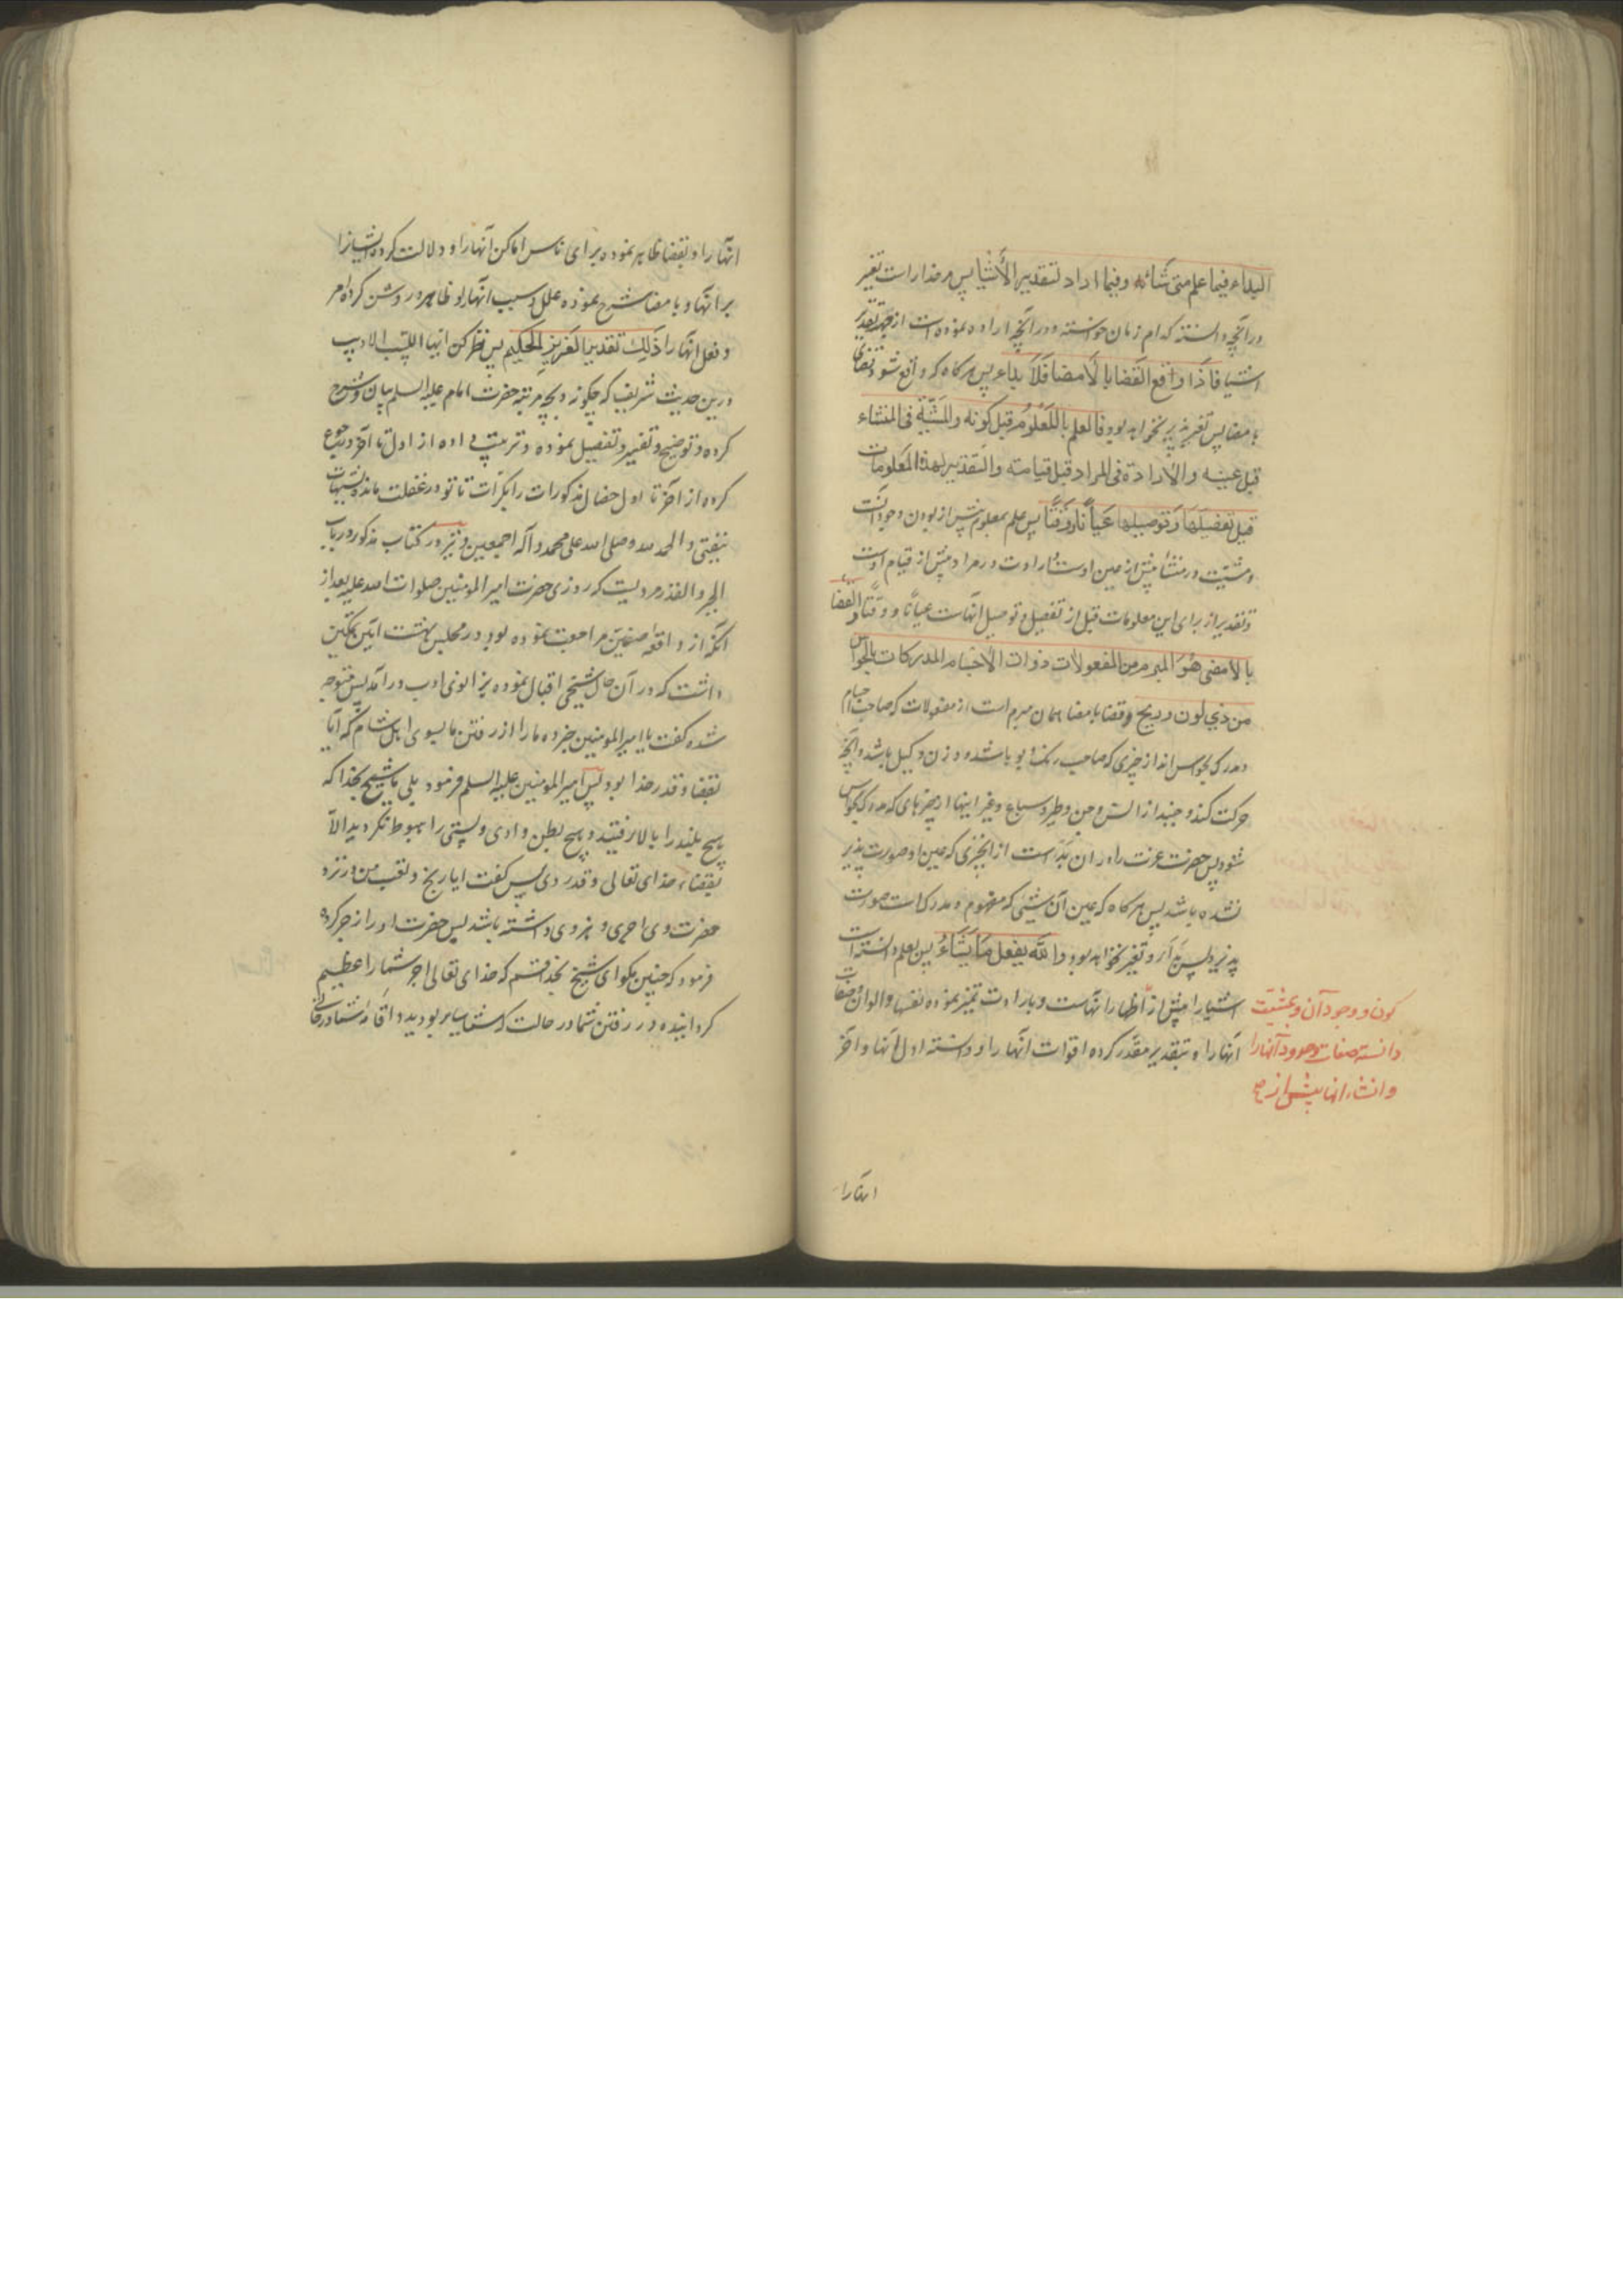 البداء فیما علم متی شاء و فیما اراد لتقدیر الأشیا پس مر خدا راست تغیر
در آنچه دانسته کدام زمان خواسته و در آنچه اراده نموده است از جهه تقدیر
اشیا فاذا واقع القضا بالأمضا فَلاَ بداء پس هر کاه که واقع شود قضای
بامضا پس تغیر پذیر نخواهد بود فالعلم باللمَعْلُومُ قبل کونه والمَشیّة فی المنشاء
قبل عینه والارادة فی المراد قبل قیامته والتقدیر لهذه المعلومات
قبل تفصیلها وَتوصیلها عیاناً ووَقتًا پس علم بمعلوم پیش از بودن وجود آنست
و مشیّت در منشأ پیش از عین اوست و ارادت در مراد پیش از قیام اوست
و تقدیر از برای این معلومات قبل از تفصیل و توصیل آنهاست عیانًا و وقتًا و القضا
بالأمضی هُوَ المبرم من المفعولات ذوات الأجسام المدرکات بالحواس
من ذی لون و ریح و قضا بامضا همان مبرم است از مفعولات که صاحب اجسام
مدرک بحواس‌اند از چیزی که صاحب رنک و بو باشد و وزن و کیل باشد و آنچه
حرکت کند و جنبد از انس و جن و طیر و سباع و غیر اینها از چیزهای که مدرک بحواس
شود پس حضرت عزت را در ان بَدْاست از انچیزی که عین او صورت پذیر
نشده باشد پس هر کاه که عین آن شیئی که مفهوم و مدرک است صورت
پذیرد پس بداء و تغیر نخواهد بود والله یفعل مَا یَشَاءُ پس بعلم دانسته است
اشیا را پیش از اظهار انهاست و بارادت تمیز نموده نفسها و الوان و صفات
انها را و بتقدیر مقدّر کرده اقوات انها را و دانسته اول انها و آخر
کون و وجود آن و بمشیّت
دانسته صفات و حدود آنها را
و انشاء انها پیش از صح
انها را
انها را و بقضا ظاهر نموده برای ناس اماکن آنها را و دلالت کرده ایشانرا
بر انها و بامضا شرح نموده علل و سبب انها را و ظاهر و روشن کرده امر
و فعل انها را ذلِكَ تقدیر العَزیزِ الحَکیم پس نظر کن ایها اللبیب الادیب
درین حدیث شریف که چکونه و بچه مرتبه حضرت امام علیه السلم بیان و شرح
کرده و توضیح و تفسیر و تفصیل نموده و ترتیب داده از اول تا آخر و رجوع
کرده از آخر تا اول خصال مذکورات را بکرّات تا تو در غفلت مانده بشبهات
نیفتی و الحمد لله و صلی الله علی محمد و آله اجمعین و نیز در کتاب مذکور در باب
الجبر و القدر مرویست که روزی حضرت امیر المومنین صلوات الله علیه بعد از
انکه از واقعه صفین مراجعت نموده بود در مجلس بهشت آیین تمکین
داشت که در آن حال شیخی اقبال نموده بزانوی ادب در آمد پس متوجه
شده گفت یا امیر المومنین خبر ده ما را از رفتن ما بسوی اهل شام که آیا
بقضا و قدر خدا بود پس امیر المومنین علیه السلم فرمود بلی یا شیخ بخدا که
هیچ بلند را بالا نرفتید و هیچ بطن وادی و پستی را هبوط نکردید الاّ
بقضاء خدای تعالی و قدر وی پس کفت ایا رنج و تعب من در نزد
حضرت وی اجری و مزدی داشته باشد پس حضرت او را زجر کرده
فرمود که چنین مکو ای شیخ بخدا قسم که خدای تعالی اجر شما را عظیم
کردانیده در رفتن شما در حالت که شما سایر بودید و اقامه شما در حالتی